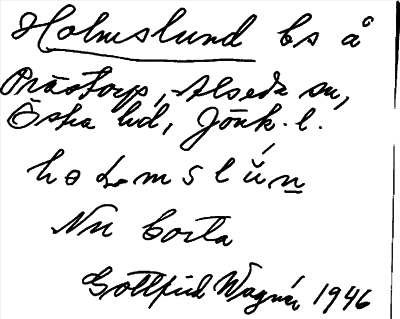 Holmslund bs å
Prästorp, Alseda sn,
Östra hd, Jönk. l.
Nu borta
Gottfrid Wagnér 1946